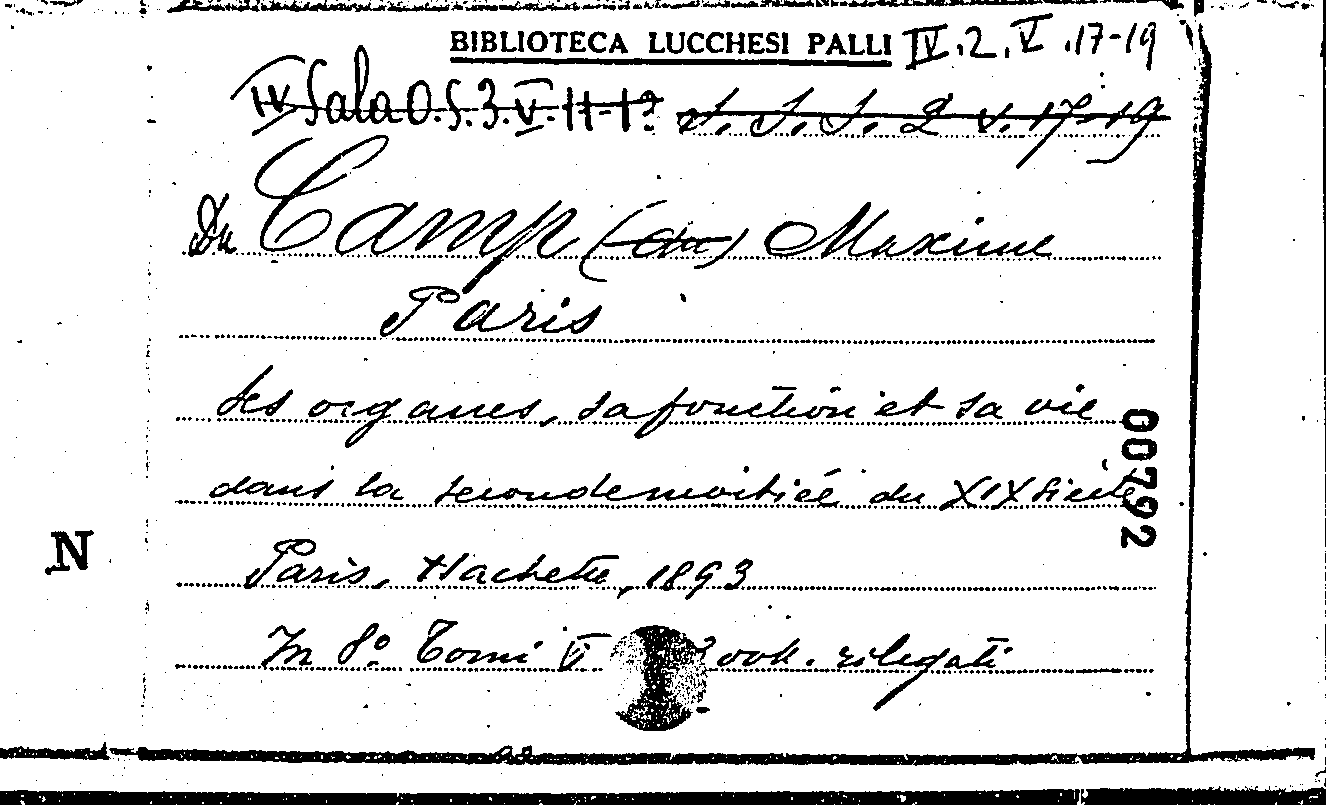 BIBLIOTECA LUCCHESI PALLI IV.2.V.17-19
IV Sala O.S.3.V.11-13 S. S. S. 2 V. 17-19
Du Camp (du) Maxime
Paris
ses organes, sa fonction et sa vie
dans la seconde moitiéé du XIX siècle
Paris, Hachette, 1893
In 8º Tomi VI voll. rilegati
00792
N